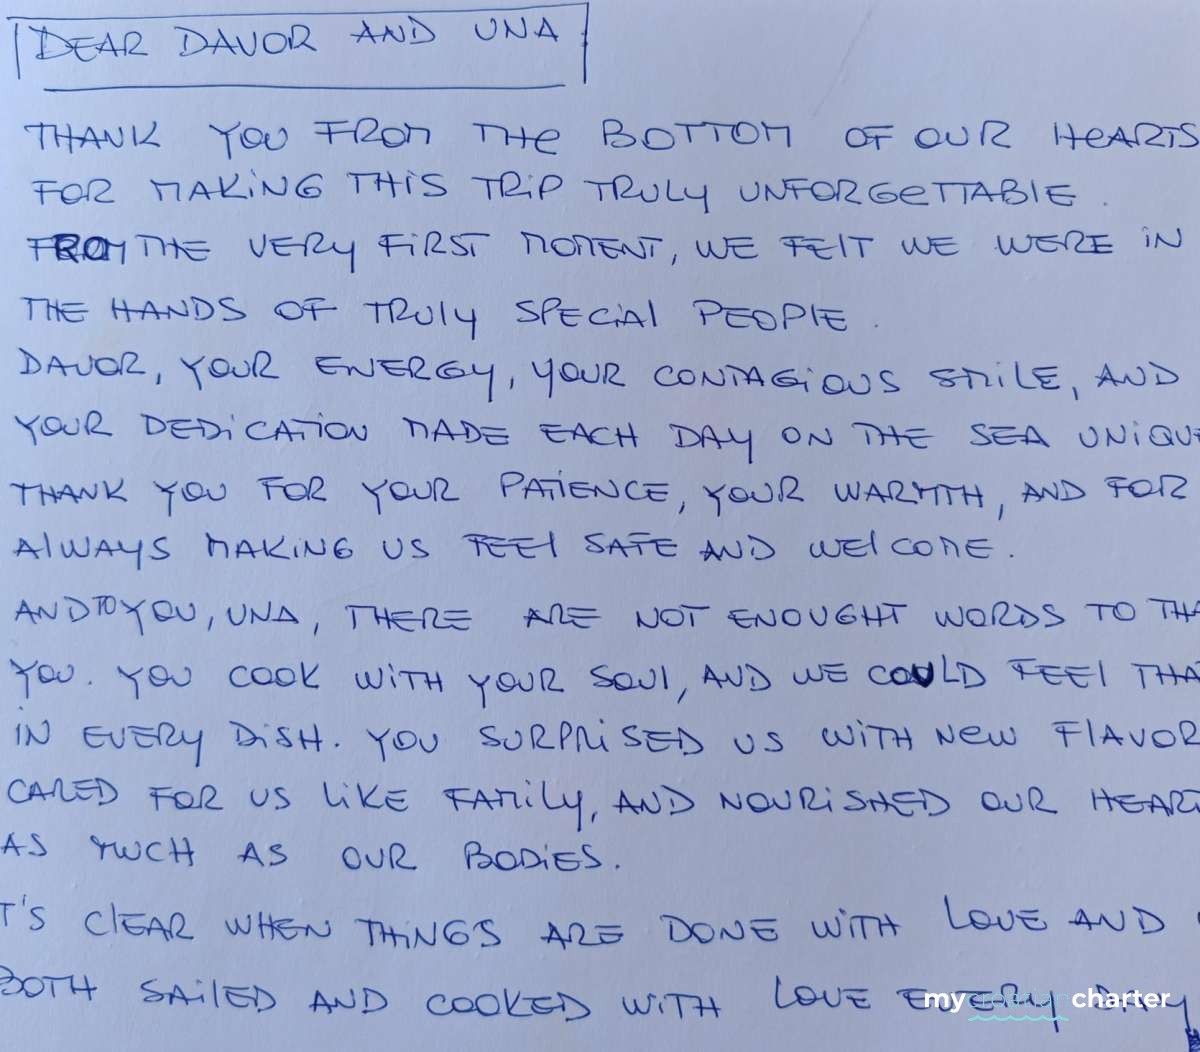 DEAR DAVOR AND UNA
THANK YOU FROM THE BOTTOM OF OUR HEARTS
FOR MAKING THIS TRIP TRULY UNFORGETTABLE.
FROM THE VERY FIRST MOMENT, WE FELT WE WERE IN
THE HANDS OF TRULY SPECIAL PEOPLE.
DAVOR, YOUR ENERGY, YOUR CONTAGIOUS SMILE, AND
YOUR DEDICATION MADE EACH DAY ON THE SEA UNIQUE
THANK YOU FOR YOUR PATIENCE, YOUR WARMTH, AND FOR
ALWAYS MAKING US FEEL SAFE AND WELCOME.
AND TO YOU, UNA, THERE ARE NOT ENOUGHT WORDS TO THA
YOU. YOU COOK WITH YOUR SOUL, AND WE COULD FEEL THA
IN EVERY DISH. YOU SURPRISED US WITH NEW FLAVOR
CARED FOR US LIKE FAMILY, AND NOURISHED OUR HEART
AS MUCH AS OUR BODIES.
T'S CLEAR WHEN THINGS ARE DONE WITH LOVE AND
BOTH SAILED AND COOKED WITH LOVE EVERY DAY
mycroatiancharter